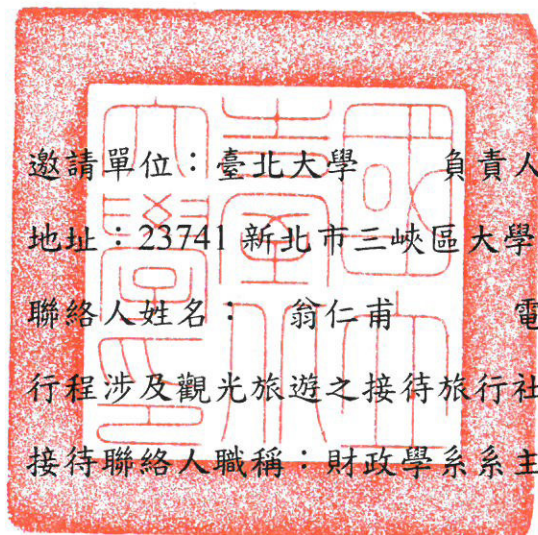 國立臺北大學印
邀請單位：臺北大學　負責人
地址：23741 新北市三峽區大學
聯絡人姓名：　翁仁甫　電
行程涉及觀光旅遊之接待旅行社
接待聯絡人職稱：財政學系系主